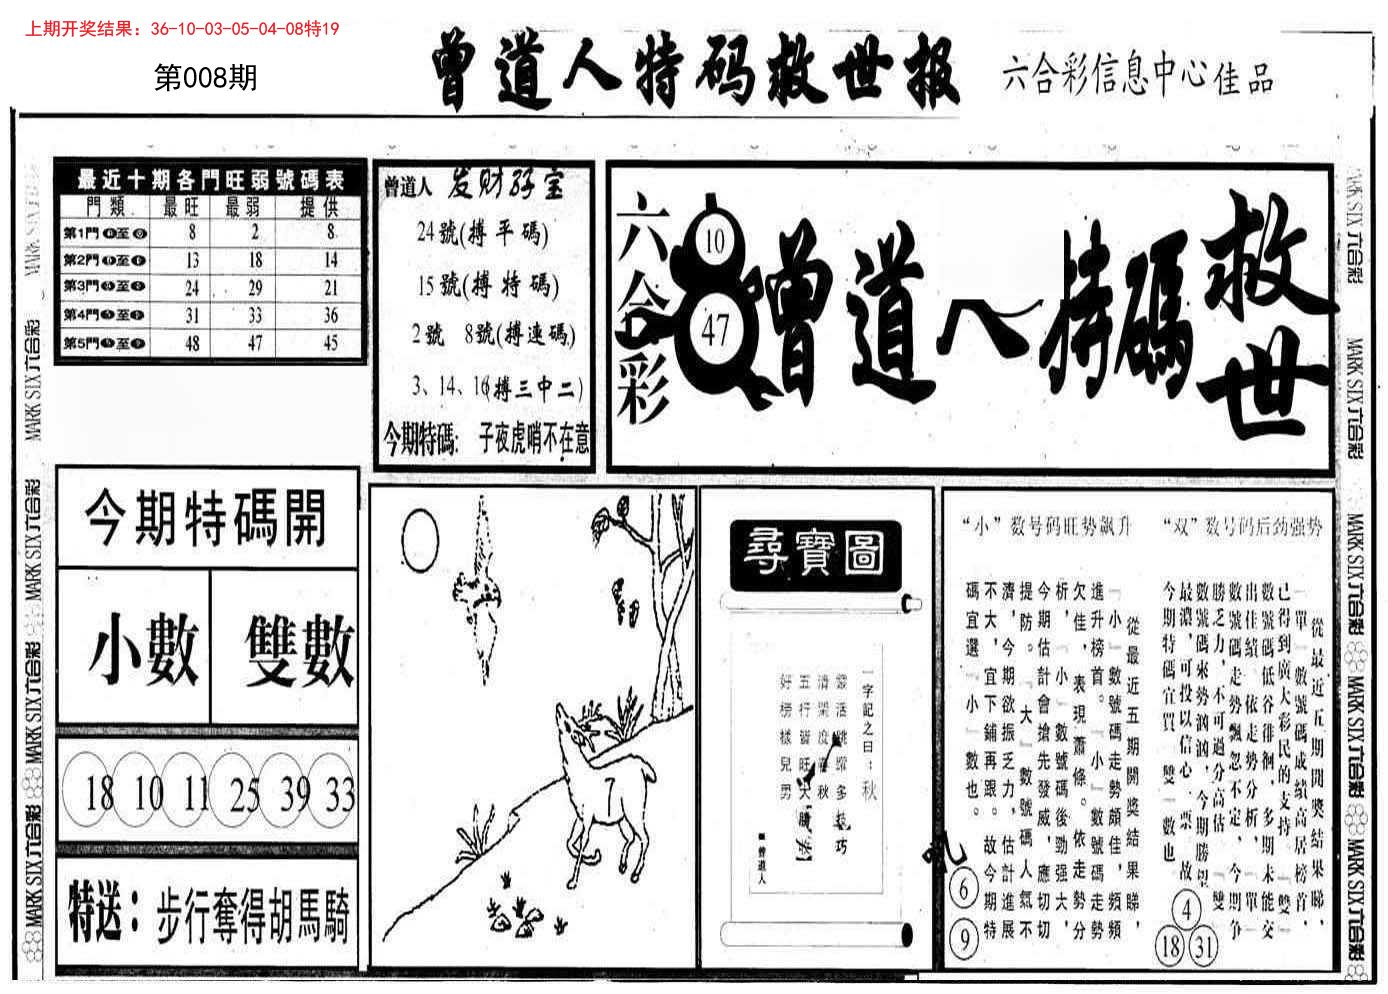 上期开奖结果：36-10-03-05-04-08特19
第008期
曾道人特码救世报
六合彩信息中心佳品
最近十期各門旺弱號碼表
門類 最旺 最弱 提供
第1門 至 8 2 8
第2門 至 13 18 14
第3門 至 24 29 21
第4門 至 31 33 36
第5門 至 48 47 45
曾道人 发财孖宝
24號(搏平碼)
15號(搏特碼)
2號 8號(搏連碼)
3、14、16(搏三中二)
今期特碼: 子夜虎哨不在意
六合彩
10
47
曾道人特碼救世
今期特碼開
小數 雙數
18 10 11 25 39 33
特送：步行奪得胡馬騎
尋寶圖
一字記之曰：秋
活跳躍多技巧
清榮度春秋
五行皆旺大
好榜樣兒男
■曾道人
“小”数号码旺势飙升
從最近五期開奖结果睇，
『小』數號碼走勢頗佳，頻頻
進升榜首。『小』數號碼走勢
欠佳，表現蕭條。依走勢分
析，『小』數號碼後勁强大，
今期估計會搶先發威，應切切
提防。『大』數號碼人氣不
濟，今期欲振乏力，估計進展
不大，宜下鋪再跟。故今期特
碼宜選『小』數也。
6
9
“双”数号码后劲强势
從最近五期開奖结果睇，
『單』數號碼成績高居榜首，
已得到廣大彩民的支持。『雙』
數號碼低谷徘徊，多期未能交
出佳績。依走勢分析，『單』
數號碼走勢飄忽不定，今期争
勝乏力，不可過分高估。『雙』
數號碼來勢汹汹，今期勝望
最濃，可投以信心一票。故
今期特碼宜買『雙』數也
4
18 31
MARK SIX 六合彩
MARK SIX 六合彩
MARK SIX 六合彩
MARK SIX 六合彩
MARK SIX 六合彩
MARK SIX 六合彩
MARK SIX 六合彩
MARK SIX 六合彩